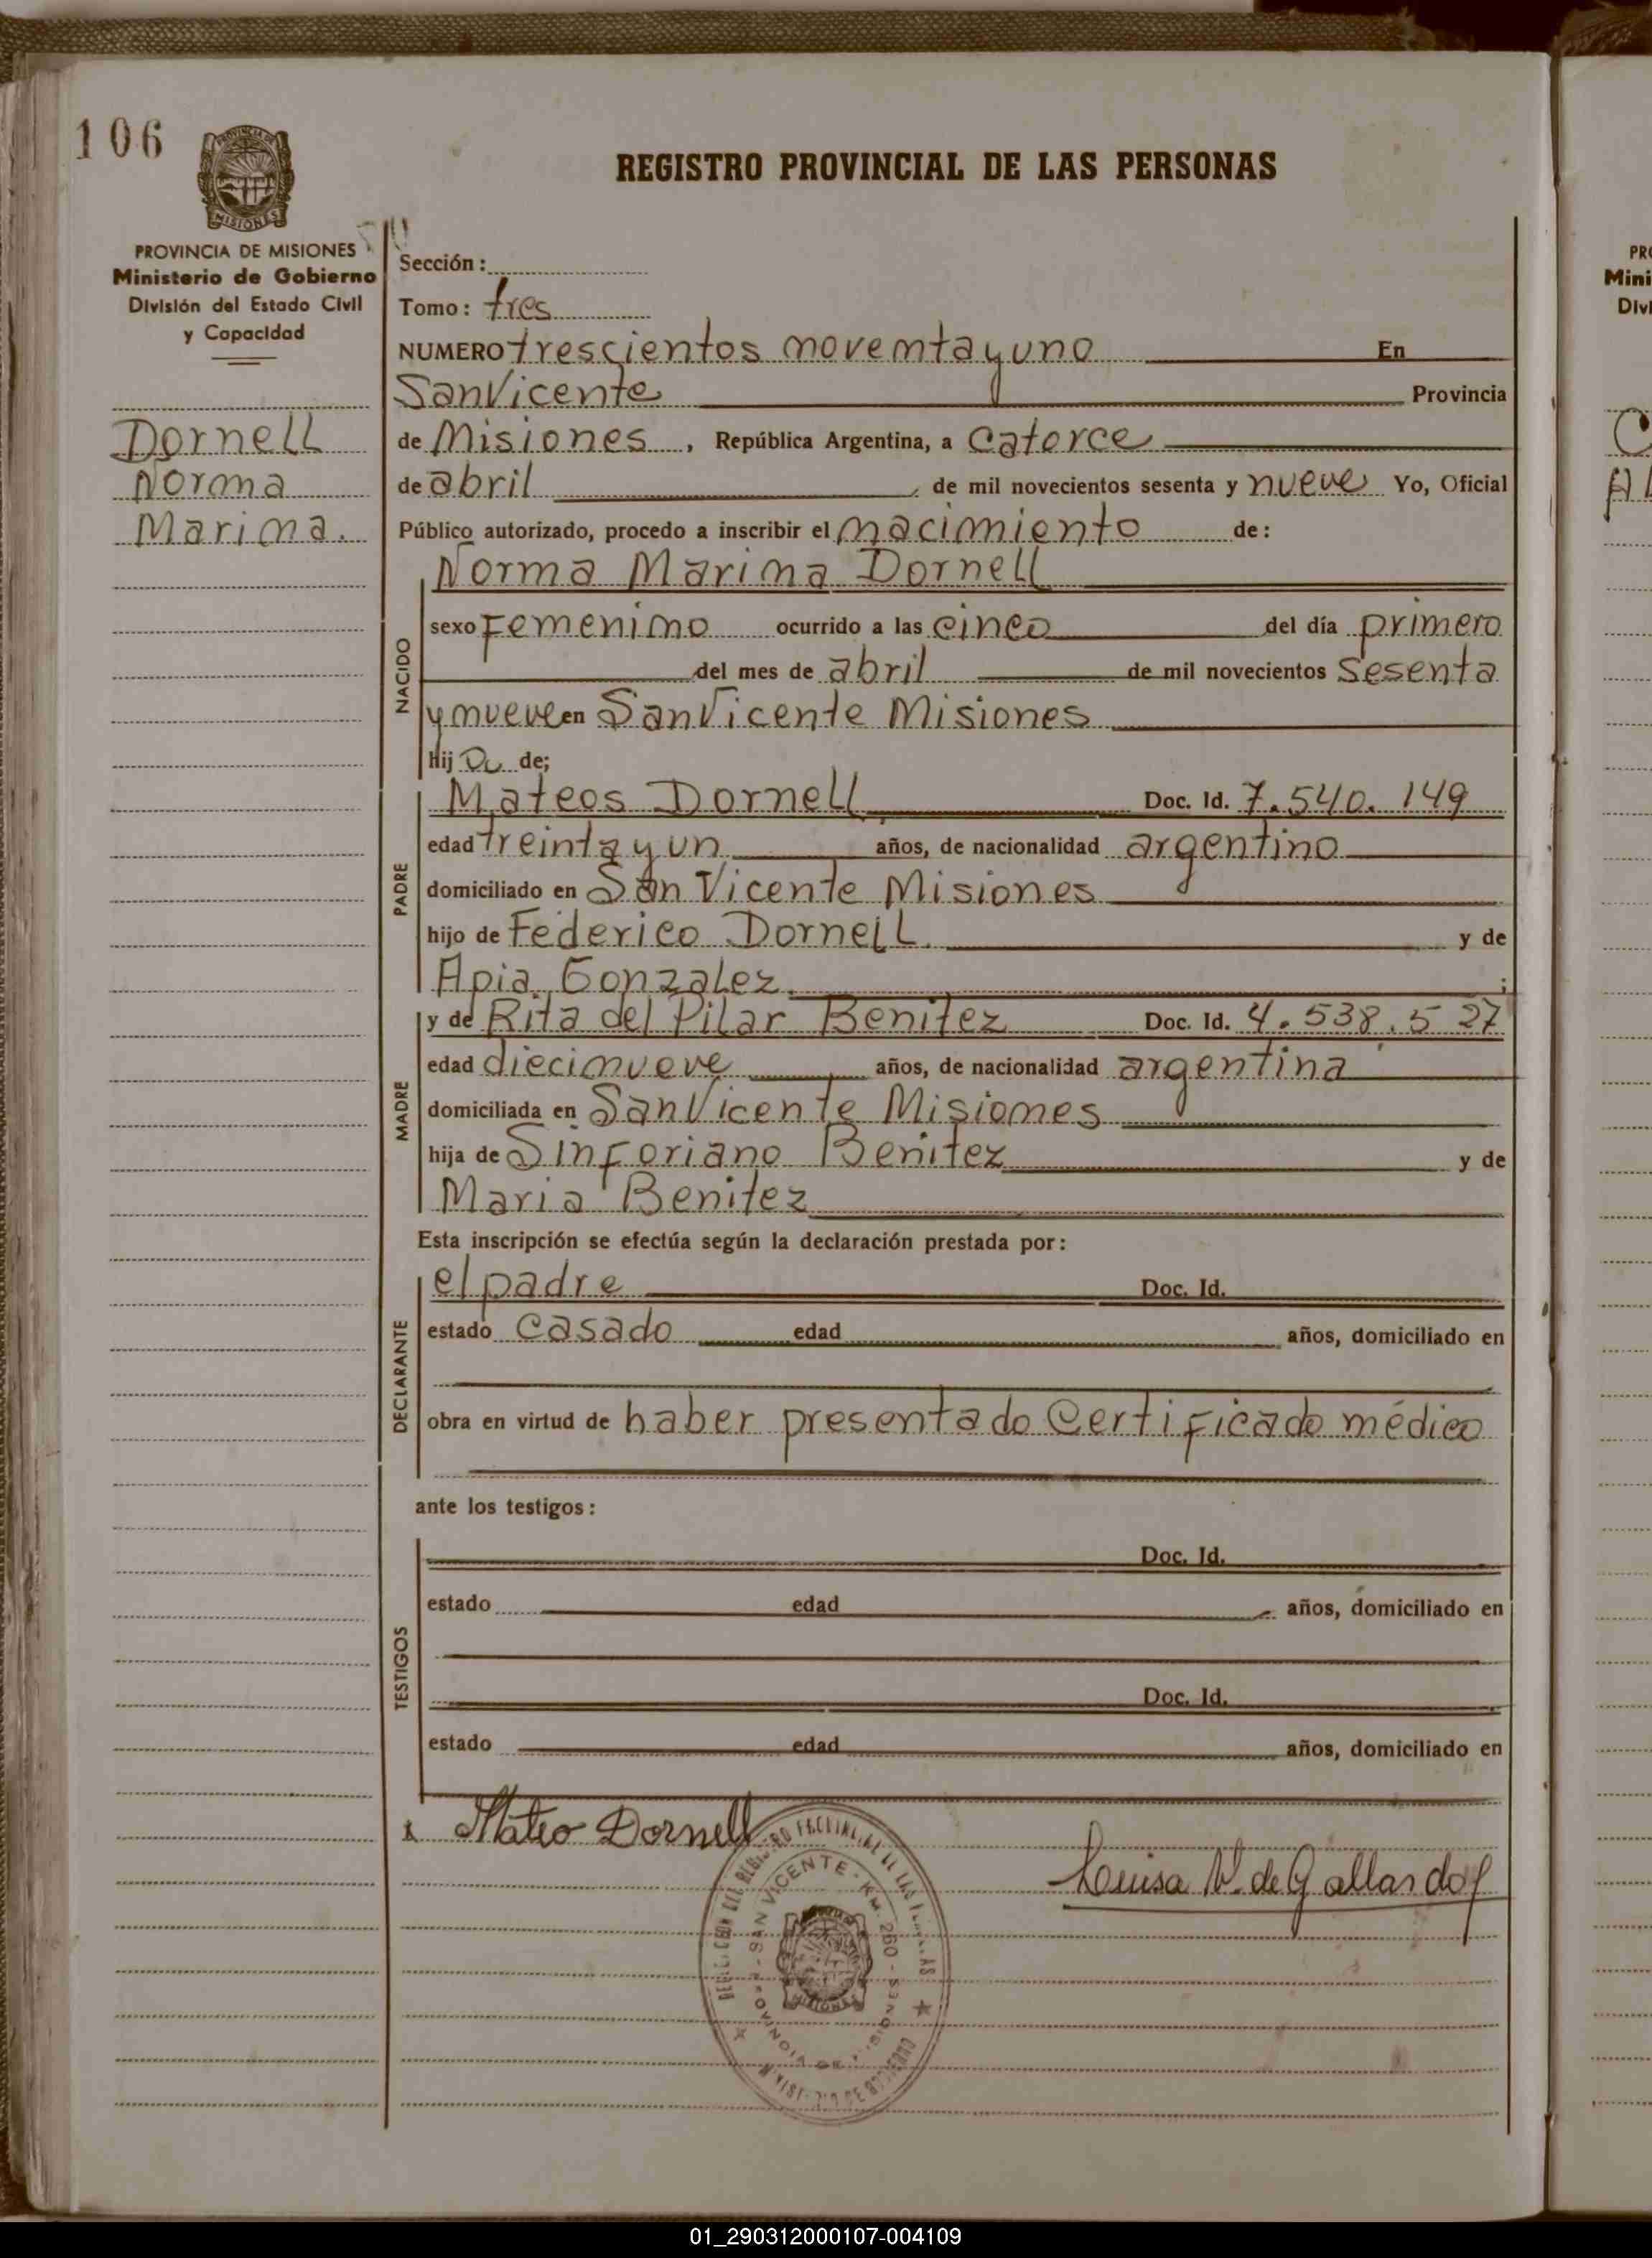 106
PROVINCIA DE
MISIONES
REGISTRO PROVINCIAL DE LAS PERSONAS
PROVINCIA DE MISIONES
Ministerio de Gobierno
División del Estado Civil
y Capacidad
Dornell
Norma
Marina.
Sección:
Tomo: tres
NUMERO trescientos noventa y uno En
San Vicente Provincia
de Misiones, República Argentina, a catorce
de abril de mil novecientos sesenta y nueve Yo, Oficial
Público autorizado, procedo a inscribir el nacimiento de:
NACIDO
Norma Marina Dornell
sexo Femenino ocurrido a las cinco del día primero
del mes de abril de mil novecientos sesenta
y nueve en San Vicente Misiones
Hij de;
PADRE
Mateos Dornell Doc. Id. 7.540.149
edad treinta y un años, de nacionalidad argentino
domiciliado en San Vicente Misiones
hijo de Federico Dornell y de
Apia Gonzalez ;
MADRE
y de Rita del Pilar Benitez Doc. Id. 4.538.527
edad diecinueve años, de nacionalidad argentina
domiciliada en San Vicente Misiones
hija de Sinforiano Benitez y de
Maria Benitez
Esta inscripción se efectúa según la declaración prestada por:
DECLARANTE
el padre Doc. Id.
estado casado edad años, domiciliado en
obra en virtud de haber presentado Certificado médico
ante los testigos:
TESTIGOS
Doc. Id.
estado edad años, domiciliado en
Doc. Id.
estado edad años, domiciliado en
Mateo Dornell
Luisa de Gallardo
SAN VICENTE - KM. 260 - MISIONES
PROVINCIA DE
MISIONES
PR
Mini
Divi
01_290312000107-004109